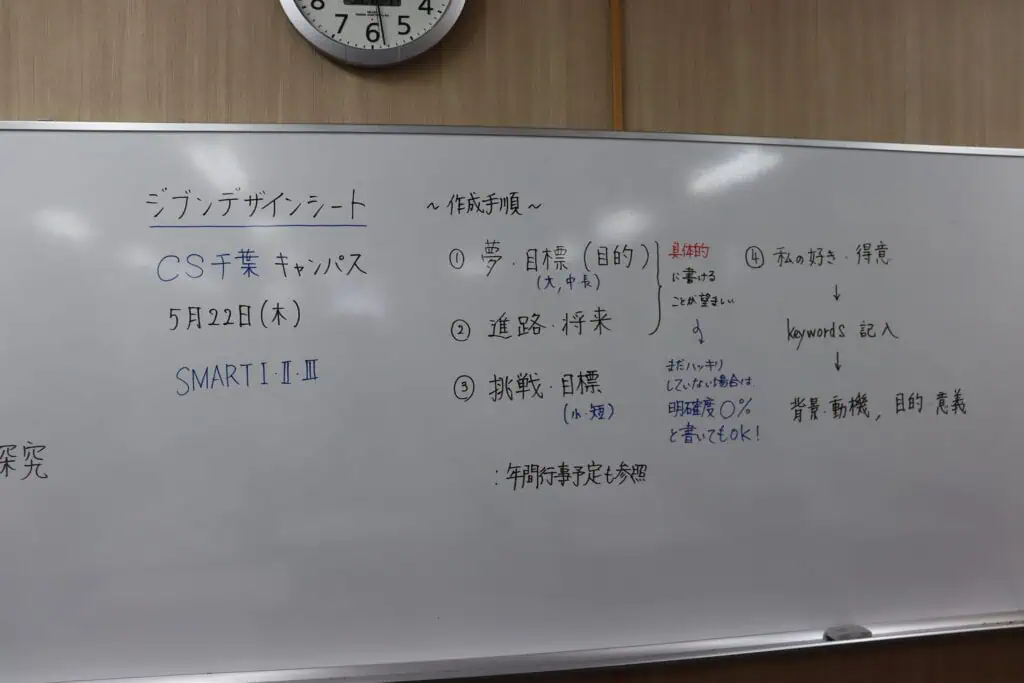 8 7 6 5 4
ジブンデザインシート
CS千葉 キャンパス
5月22日(木)
SMART I・II・III
探究
~作成手順~
① 夢・目標(目的)
(大,中長)
② 進路・将来
③ 挑戦・目標
(小・短)
:年間行事予定も参照
具体的
に書ける
ことが望ましい
まだハッキリ
していない場合は、
明確度○%
と書いてもOK!
④ 私の好き・得意
↓
keywords 記入
↓
背景・動機, 目的 意義